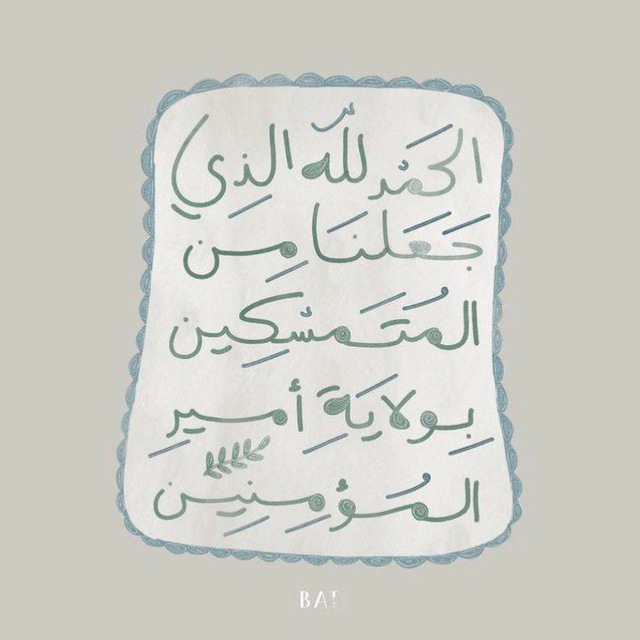 الحَمْدُ للّٰه الذِي
جَعَلنَا مِن
المُتَمسّكِين
بِولايَة أميرِ
المُؤمِنِين
BAT